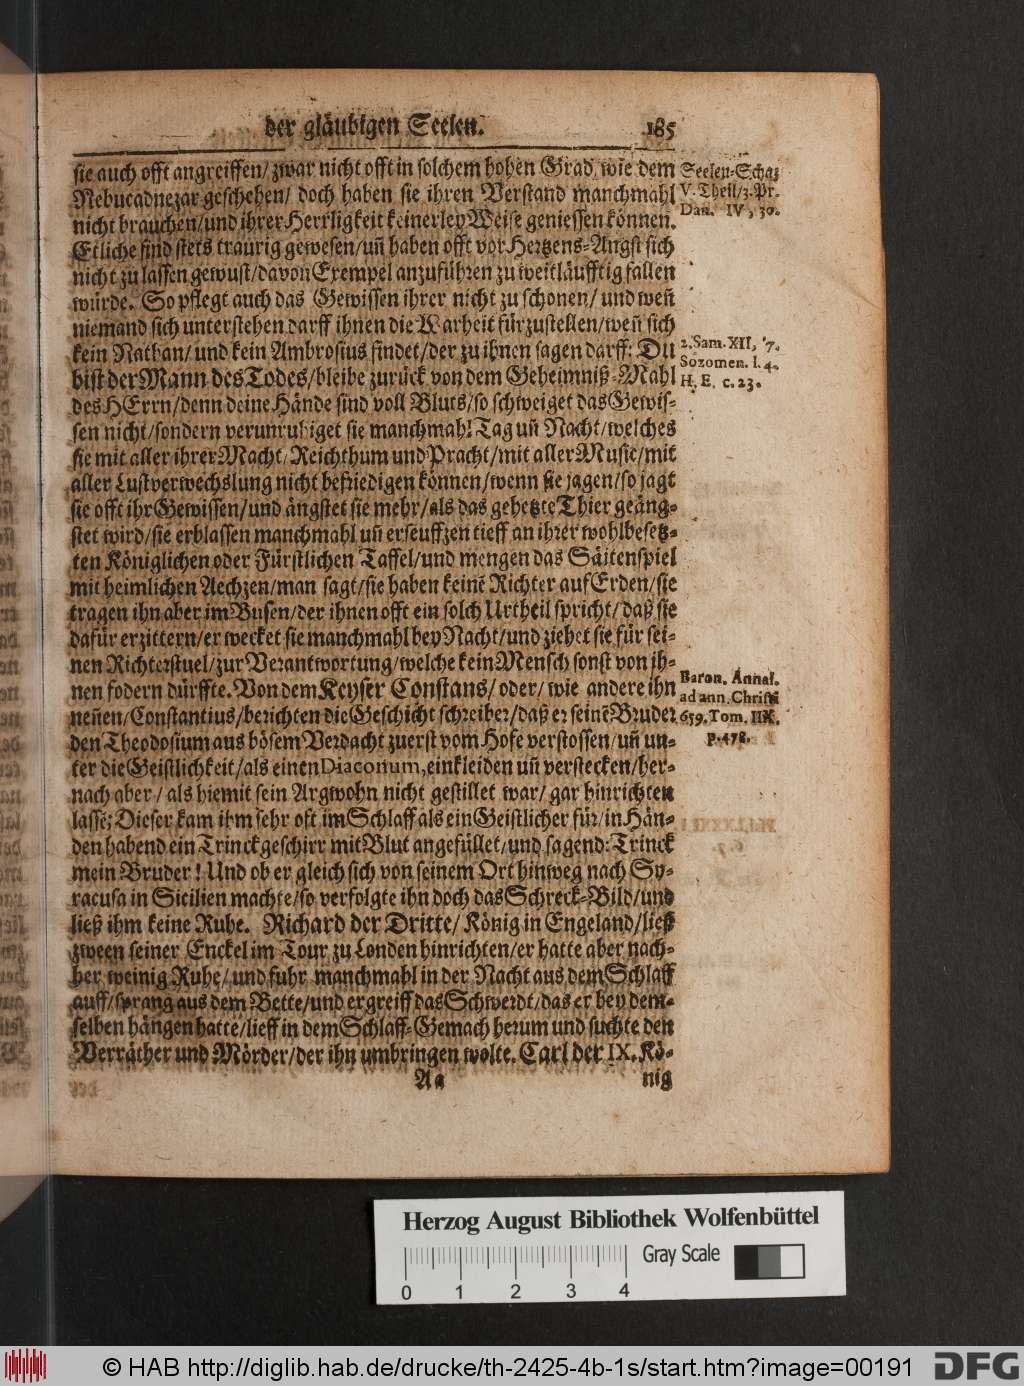 der gläubigen Seelen. 185
sie auch offt angreiffen/ zwar nicht offt in solchem hohen Grad, wie dem
Nebucadnezar geschehen/ doch haben sie ihren Verstand manchmahl
nicht brauchen/und ihrer Herrligkeit keinerley Weise geniessen können.
Etliche sind stets traurig gewesen/uñ haben offt vor Hertzens-Angst sich
nicht zu lassen gewust/davon Exempel anzuführen zu weitläufftig fallen
würde. So pflegt auch das Gewissen ihrer nicht zu schonen/ und weñ
niemand sich unterstehen darff ihnen die Warheit fürzustellen/weñ sich
kein Nathan/ und kein Ambrosius findet/der zu ihnen sagen darff: Du
bist der Mann des Todes/bleibe zurück von dem Geheimniß-Mahl
des HErrn/denn deine Hände sind voll Bluts/so schweiget das Gewis-
sen nicht/sondern verunruhiget sie manchmahl Tag uñ Nacht/welches
sie mit aller ihrer Macht/Reichthum und Pracht/mit aller Music/mit
aller Lustverwechslung nicht befriedigen können/wenn sie jagen/so jagt
sie offt ihr Gewissen/und ängstet sie mehr/als das gehetzte Thier geäng-
stet wird/sie erblassen manchmahl uñ erseuffzen tieff an ihrer wohlbesetz-
ten Königlichen oder Fürstlichen Taffel/und mengen das Säitenspiel
mit heimlichen Aechzen/man sagt/sie haben keinẽ Richter auf Erden/sie
tragen ihn aber im Busen/der ihnen offt ein solch Urtheil spricht/daß sie
dafür erzittern/er wecket sie manchmahl bey Nacht/und ziehet sie für sei-
nen Richterstuel/zur Verantwortung/welche kein Mensch sonst von ih-
nen fodern dürffte. Von dem Keyser Constans/ oder/ wie andere ihn
neñen/Constantius/berichten die Geschicht schreiber/daß er seinẽ Bruder
den Theodosium aus bösem Verdacht zuerst vom Hofe verstossen/uñ un-
ter die Geistlichkeit/als einen Diaconum, einkleiden uñ verstecken/her-
nach aber/ als hiemit sein Argwohn nicht gestillet war/ gar hinrichten
lassẽ; Dieser kam ihm sehr oft im Schlaff als ein Geistlicher für/in Hän-
den habend ein Trinckgeschirr mit Blut angefüllet/und sagend: Trinck
mein Bruder! Und ob er gleich sich von seinem Ort hinweg nach Sy-
racusa in Sicilien machte/so verfolgte ihn doch das Schreck-Bild/und
ließ ihm keine Ruhe. Richard der Dritte/ König in Engeland/ließ
zween seiner Enckel im Tour zu Londen hinrichten/er hatte aber nach-
her weinig Ruhe/ und fuhr manchmahl in der Nacht aus dem Schlaff
auff/sprang aus dem Bette/und ergreiff das Schwerdt/das er bey dem-
selben hängen hatte/lieff in dem Schlaff-Gemach herum und suchte den
Verräther und Mörder/der ihn umbringen wolte. Carl der IX. Kö-
Aa nig
Seelen-Schaz
V. Theil/3. Pr.
Dan. IV, 30.
2. Sam. XII, 7.
Sozomen. l. 4.
H. E. c. 23.
Baron. Annal.
ad ann. Christi
659. Tom. IIX.
p. 478.
Herzog August Bibliothek Wolfenbüttel
Gray Scale
0 1 2 3 4
© HAB http://diglib.hab.de/drucke/th-2425-4b-1s/start.htm?image=00191
DFG